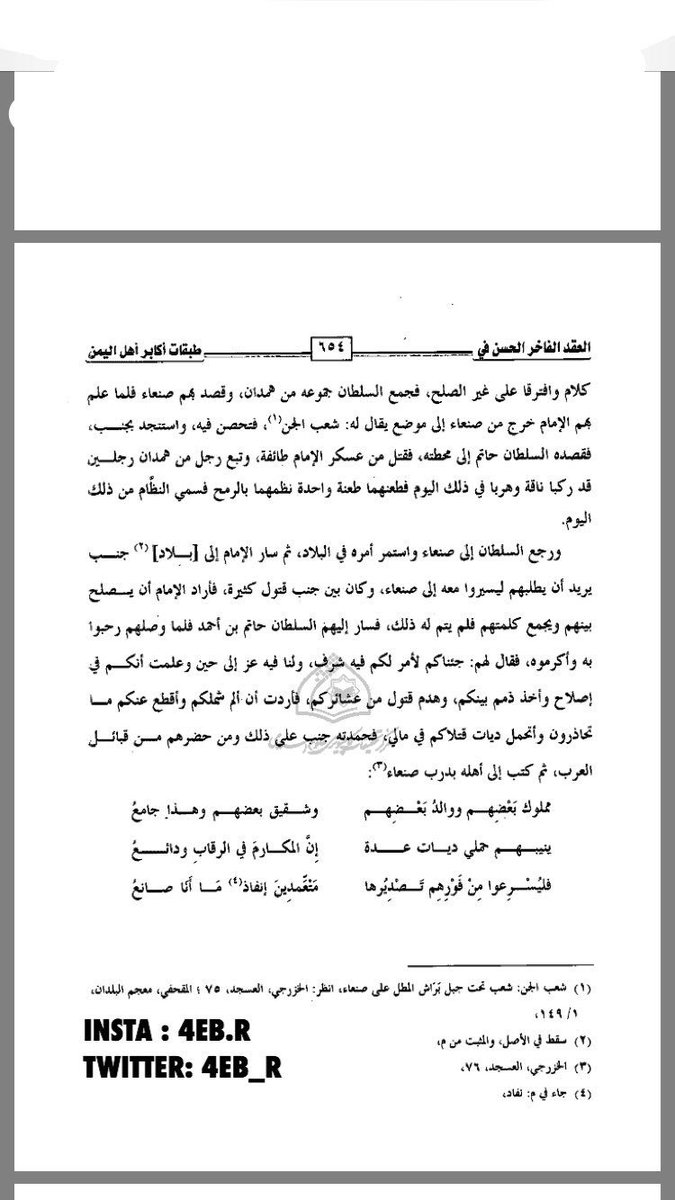 العقد الفاخر الحسن في ٦٥٤ طبقات أكابر أهل اليمن
كلام وافترقا على غير الصلح، فجمع السلطان جموعه من همدان، وقصد بهم صنعاء فلما علم
بهم الإمام خرج من صنعاء إلى موضع يقال له: شعب الجن(١)، فتحصن فيه، واستنجد بجنب،
فقصده السلطان حاتم إلى محطته، فقتل من عسكر الإمام طائفة، وتبع رجل من همدان رجلين
قد ركبا ناقة وهربا في ذلك اليوم فطعنهما طعنة واحدة نظمهما بالرمح فسمي النظَّام من ذلك
اليوم.
ورجع السلطان إلى صنعاء واستمر أمره في البلاد، ثم سار الإمام إلى [بلاد] (٢) جنب
يريد أن يطلبهم ليسيروا معه إلى صنعاء، وكان بين جنب قتول كثيرة، فأراد الإمام أن يصلح
بينهم ويجمع كلمتهم فلم يتم له ذلك، فسار إليهم السلطان حاتم بن أحمد فلما وصلهم رحبوا
به وأكرموه، فقال لهم: جئناكم لأمر لكم فيه شرف، ولنا فيه عز إلى حين وعلمت أنكم في
إصلاح وأخذ ذمم بينكم، وهدم قتول من عشائركم، فأردت أن ألم شملكم وأقطع عنكم ما
تحاذرون وأتحمل ديات قتلاكم في مالي، فحمدته جنب على ذلك ومن حضرهم من قبائل
العرب، ثم كتب إلى أهله بدرب صنعاء(٣):
مملوك بَعْضِهم ووالدُ بَعْضِهم وشقيق بعضهم وهذا جامعُ
ينيبهم حملي ديات عدة إنَّ المكارمَ في الرقاب ودائعُ
فليُسْرِعوا مِنْ فَوْرِهِم تَصْدِيُرها مَتْغَمدِينَ إنفاذ(٤) مَا أَنَا صانعُ
(١) شعب الجن: شعب تحت جبل بَرّاش المطل على صنعاء، انظر: الخزرجي، العسجد، ٧٥ ؛ المقحفي، معجم البلدان،
١/ ١٤٩،
(٢) سقط في الأصل، والمثبت من م،
(٣) الخزرجي، العسجد، ٧٦،
(٤) جاء في م: نفاد،
INSTA : 4EB.R
TWITTER: 4EB_R